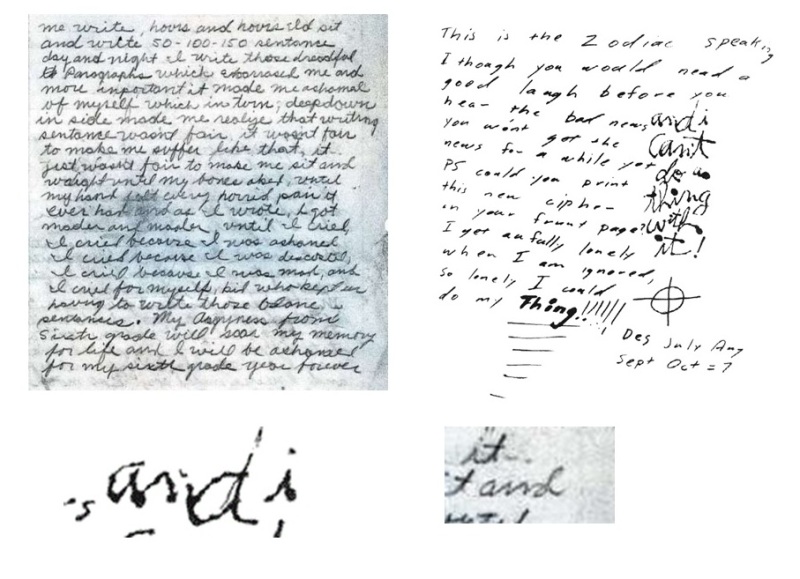 me write, hours and hours I'd sit
and write 50-100-150 sentance
day and night I write those dreadful
Paragraphs which embarrased me and
more important it made me ashamed
of myself which in turn; deepdown
in side made me realize that writing
sentance wasn't fair, it wasn't fair
to make me suffer like that, it
just wasn't fair to make me sit and
waight until my bones aked, until
my hand felt every horrid pain it
ever had and as I wrote, I got
mader and mader until I cried
I cried because I was ashamed
I cried because I was discusted,
I cried because I was mad, and
I cried for myself, kid who kept on
having to write those
sentances. My Angryness from
sixth grade will scar my memory
for life and I will be ashamed
for my sixth grade year forever
This is the Zodiac speaking
I though you would nead a
good laugh before you
hear the bad news
you won't get the
news for a while yet
PS could you print
this new cipher
in your frunt page?
I get awfully lonely
when I am ignored,
So lonely I could
do my Thing!!!!!!
and i
Can't
do a
thing
with
it!
Des July Aug
Sept Oct = 7
and i
it
t and